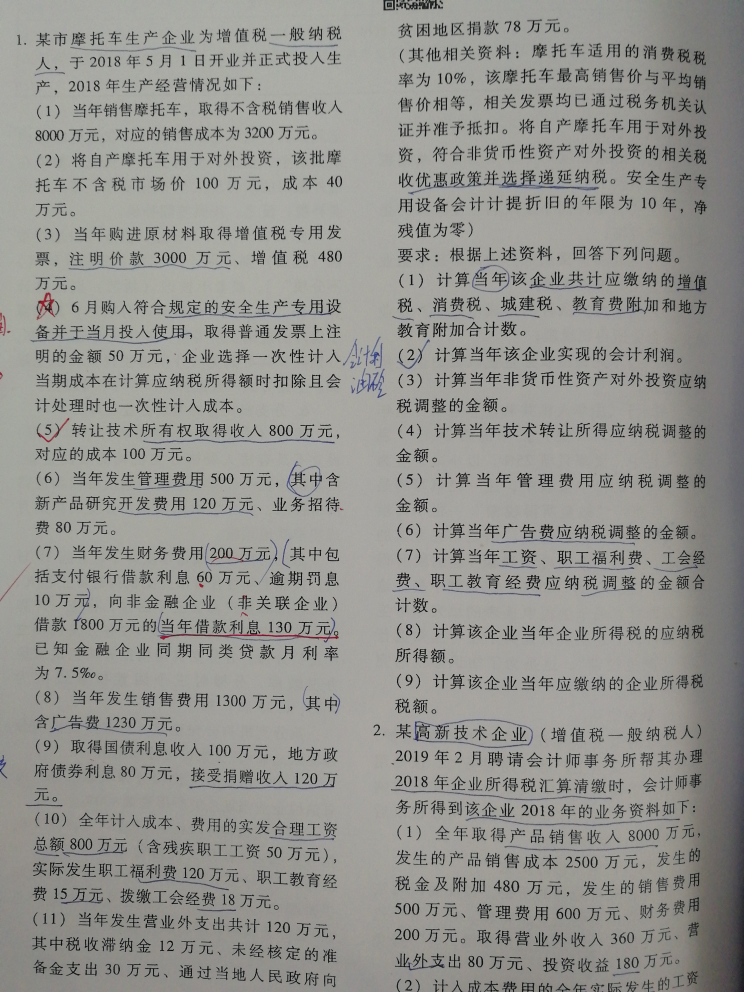 1. 某市摩托车生产企业为增值税一般纳税
人，于 2018 年 5 月 1 日开业并正式投入生
产，2018 年生产经营情况如下：
（1）当年销售摩托车，取得不含税销售收入
8000 万元，对应的销售成本为 3200 万元。
（2）将自产摩托车用于对外投资，该批摩
托车不含税市场价 100 万元，成本 40
万元。
（3）当年购进原材料取得增值税专用发
票，注明价款 3000 万元、增值税 480
万元。
（4）6 月购入符合规定的安全生产专用设
备并于当月投入使用，取得普通发票上注
明的金额 50 万元，企业选择一次性计入
当期成本在计算应纳税所得额时扣除且会
计处理时也一次性计入成本。
（5）转让技术所有权取得收入 800 万元，
对应的成本 100 万元。
（6）当年发生管理费用 500 万元，其中含
新产品研究开发费用 120 万元、业务招待
费 80 万元。
（7）当年发生财务费用 200 万元，其中包
括支付银行借款利息 60 万元、逾期罚息
10 万元，向非金融企业（非关联企业）
借款 1800 万元的当年借款利息 130 万元。
已知金融企业同期同类贷款月利率
为 7.5‰。
（8）当年发生销售费用 1300 万元，其中
含广告费 1230 万元。
（9）取得国债利息收入 100 万元，地方政
府债券利息 80 万元，接受捐赠收入 120 万
元。
（10）全年计入成本、费用的实发合理工资
总额 800 万元（含残疾职工工资 50 万元），
实际发生职工福利费 120 万元、职工教育经
费 15 万元、拨缴工会经费 18 万元。
（11）当年发生营业外支出共计 120 万元，
其中税收滞纳金 12 万元、未经核定的准
备金支出 30 万元、通过当地人民政府向
贫困地区捐款 78 万元。
（其他相关资料：摩托车适用的消费税税
率为 10%，该摩托车最高销售价与平均销
售价相等，相关发票均已通过税务机关认
证并准予抵扣。将自产摩托车用于对外投
资，符合非货币性资产对外投资的相关税
收优惠政策并选择递延纳税。安全生产专
用设备会计计提折旧的年限为 10 年，净
残值为零）
要求：根据上述资料，回答下列问题。
（1）计算当年该企业共计应缴纳的增值
税、消费税、城建税、教育费附加和地方
教育附加合计数。
（2）计算当年该企业实现的会计利润。
会计利
（3）计算当年非货币性资产对外投资应纳
税调整的金额。
（4）计算当年技术转让所得应纳税调整的
金额。
（5）计算当年管理费用应纳税调整的
金额。
（6）计算当年广告费应纳税调整的金额。
（7）计算当年工资、职工福利费、工会经
费、职工教育经费应纳税调整的金额合
计数。
（8）计算该企业当年企业所得税的应纳税
所得额。
（9）计算该企业当年应缴纳的企业所得税
税额。
2. 某高新技术企业（增值税一般纳税人）
2019 年 2 月聘请会计师事务所帮其办理
2018 年企业所得税汇算清缴时，会计师事
务所得到该企业 2018 年的业务资料如下：
（1）全年取得产品销售收入 8000 万元，
发生的产品销售成本 2500 万元，发生的
税金及附加 480 万元，发生的销售费用
500 万元、管理费用 600 万元、财务费用
200 万元。取得营业外收入 360 万元、营
业外支出 80 万元、投资收益 180 万元。
（2）计入成本费用的全年实际发生的工资